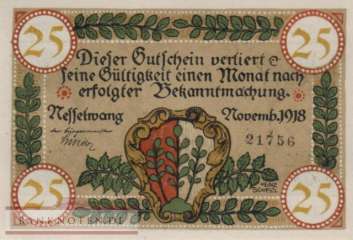 25 25
Dieser Gutschein verliert
seine Gültigkeit einen Monat nach
erfolgter Bekanntmachung.
Nesselwang Novemb. 1918
der Bürgermeister
21756
25 25
BANKNOTEN.DE